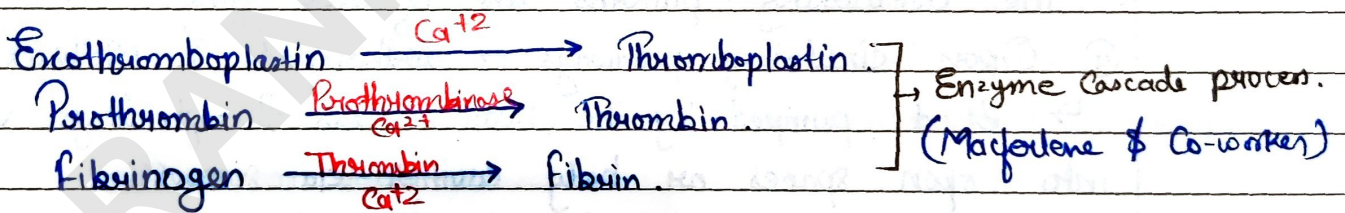 Exothromboplastin —Ca+2→ Thromboplastin.
Prothrombin —Prothrombinase Ca2+→ Thrombin.
fibrinogen —Thrombin Ca+2→ fibrin.
→ Enzyme Cascade process.
(Macferlene & Co-worker)
RAN